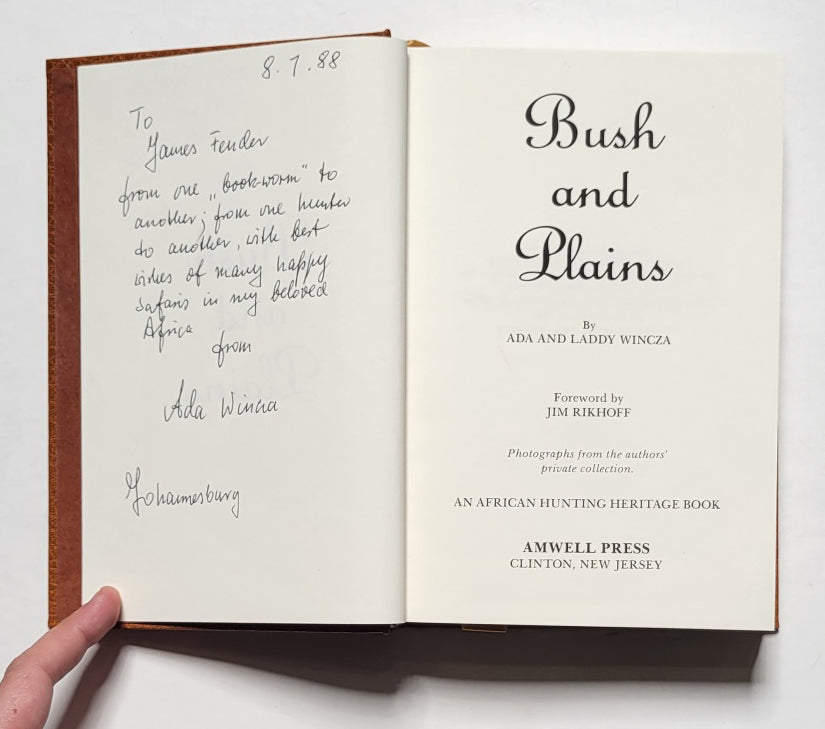 8.7.88
To
James Fender
from one „book-worm" to
another; from one hunter
to another, with best
wishes of many happy
safaris in my beloved
Africa
from
Ada Wincza
Johannesburg
Bush
and
Plains
By
ADA AND LADDY WINCZA
Foreword by
JIM RIKHOFF
Photographs from the authors'
private collection.
AN AFRICAN HUNTING HERITAGE BOOK
AMWELL PRESS
CLINTON, NEW JERSEY